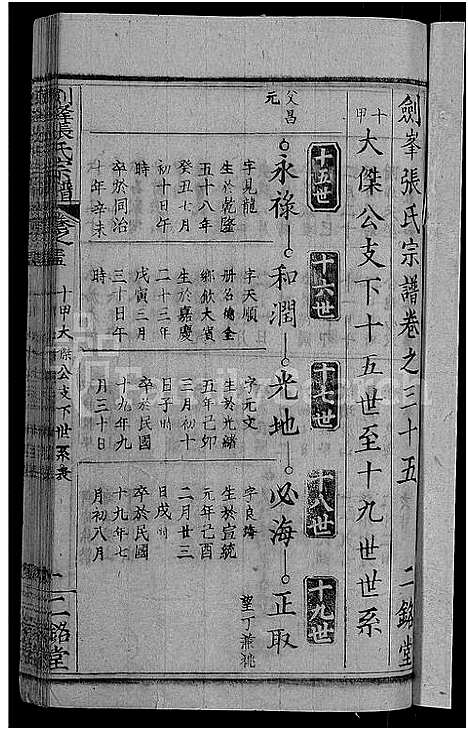 劍峯張氏宗譜卷之三十五
二銘堂
十甲
大傑公支下十五世至十九世世系
十五世
十六世
十七世
十八世
十九世
父昌元
永祿
和潤
光地
必海
正取
字見龍
生於乾隆
五十八年
癸丑七月
初十日午
時
卒於同治
十年辛未
字天順
册名總金
鄉飲大賓
生於嘉慶
二十三年
戊寅三月
三十日午
時
字元文
生於光緒
五年己卯
三月初十
日子時
卒於民國
十九年九
月三十日
字良海
生於宣統
元年己酉
二月廿三
日戌時
卒於民國
十九年七
月初八月
望丁兼祧
張氏宗譜
卷之
十甲大傑公支下世系表
一
二銘堂